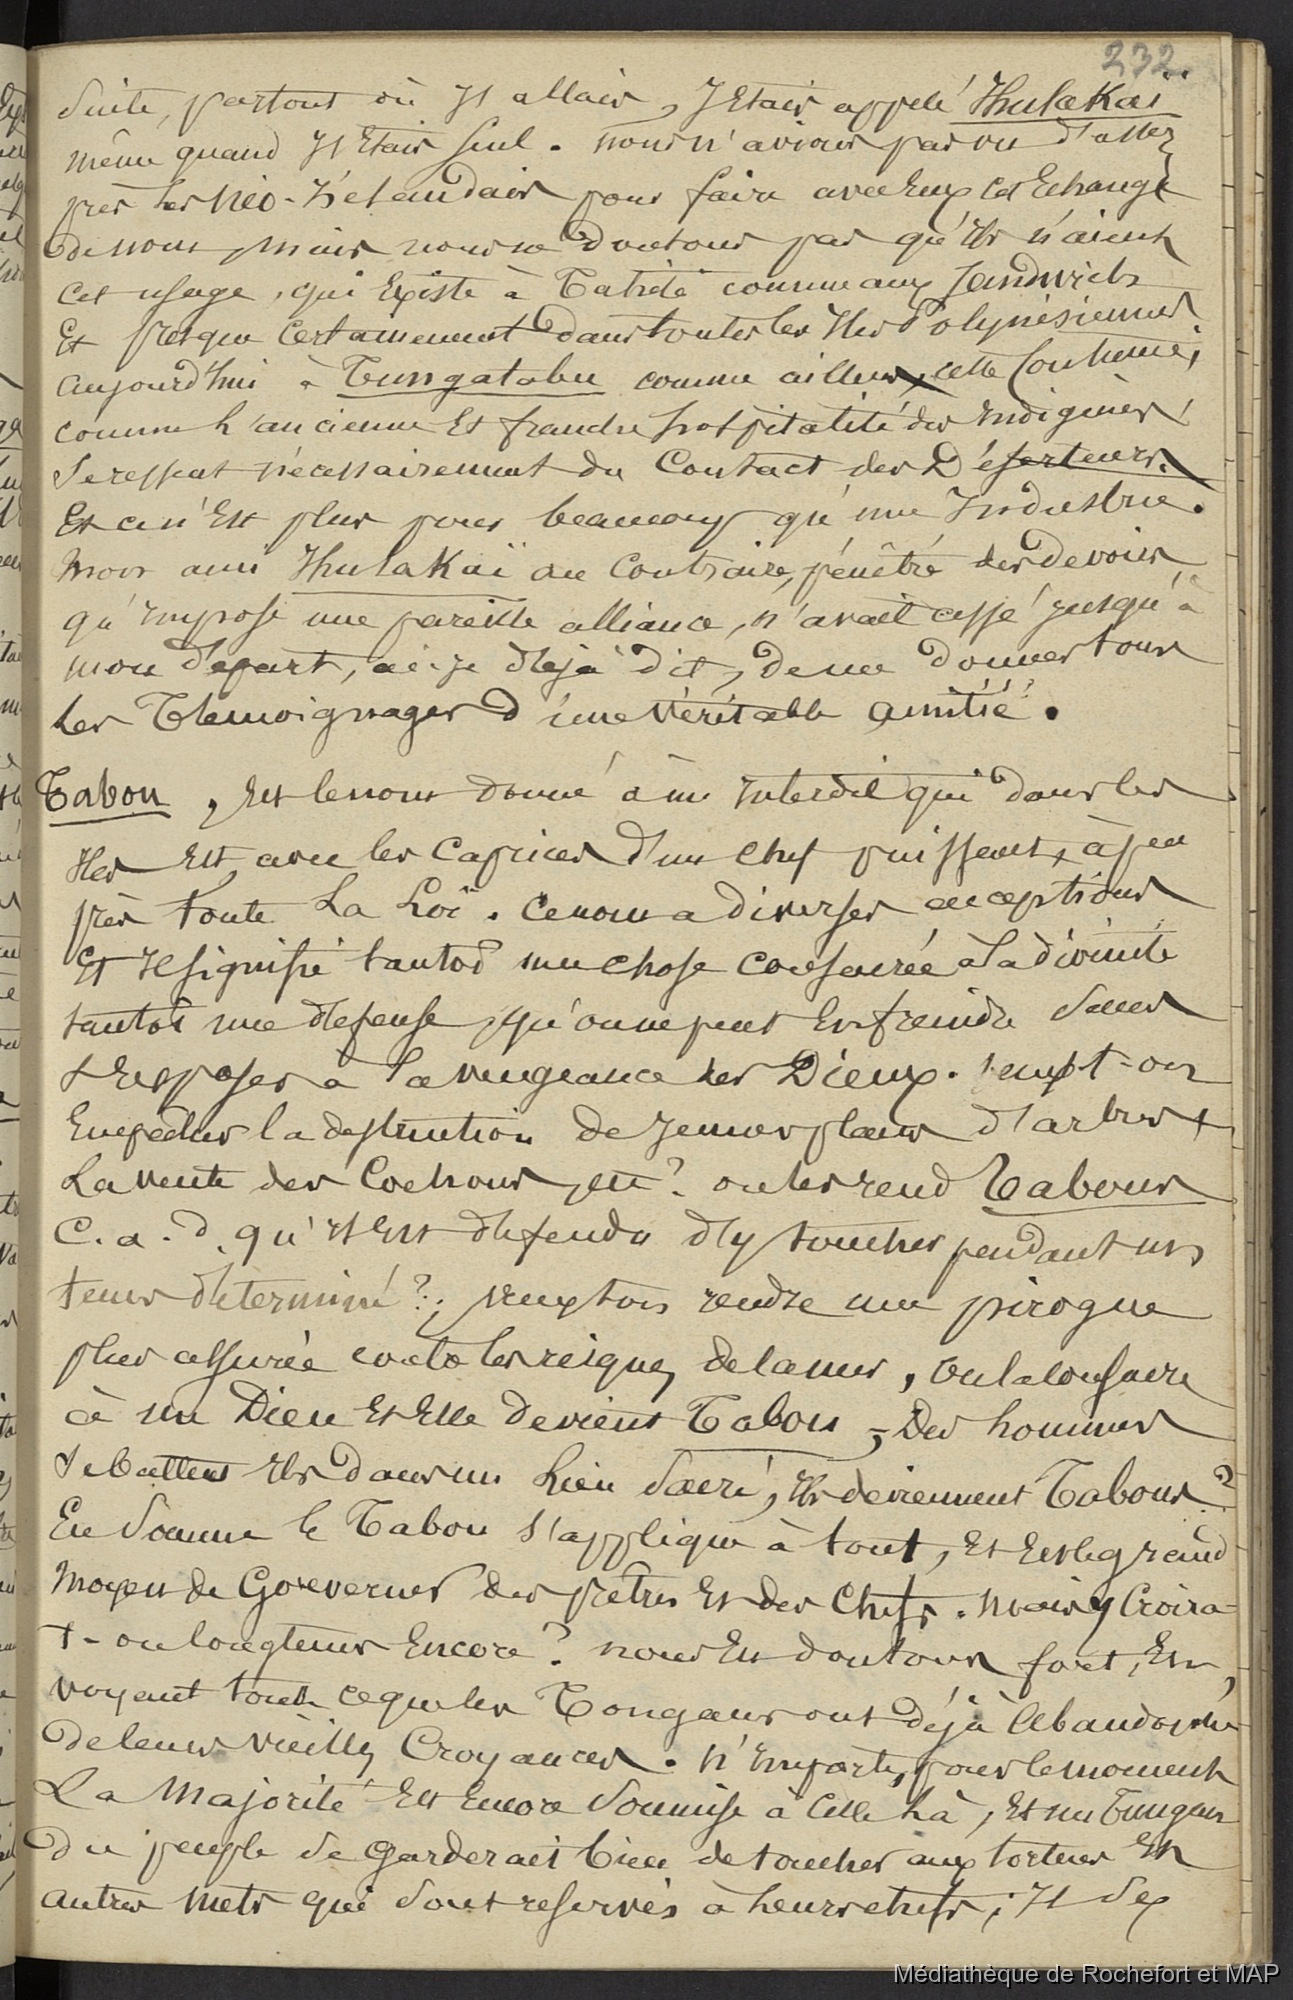 232.
suite, partout où Il allais, J'Etais appelé Thulakaï
même quand Il Etais seul. nous n'avions pas vu d'assez
près les Néo-Zélandais pour faire avec Eux cet Echange
de nous, mais nous ne doutons pas qu'Ils n'aient
cet usage, qui Existe à Tahiti comme aux Sandwich
Et presque certainement dans toutes les Iles Polynésiennes
aujourd'hui à Tungatabu comme ailleurs, cette coutume,
comme l'ancienne Et franche hospitalité des Indigènes,
se ressent nécessairement du Contact des Déserteurs.
Et ce n'Est plus pour beaucoup qu'une Industrie.
mon ami Thulakaï au Contraire, pénêtré des devoirs
qu'Impose une pareille alliance, n'avait cessé jusqu'à
mon départ, ai-je déjà dit, de me donner tous
les Témoignages d'une Véritable amitié.
Tabou, Est le nom donné à un Interdit qui dans les
Iles Est, avec les Caprices d'un chef puissant, à peu
près toute La Loi. ce nom a diverses acceptions
Et Il signifie tantôt une chose consacrée à la divinité
tantôt une défense, qu'on ne peut Enfreindre sans
s'Exposer à la vengeance des Dieux. veut-on
Empêcher la destruction de jeunes plans d'arbres,
La vente des Cochons, etc? on les rend Tabous
C.a.d. qu'Il Est défendu d'y toucher pendant un
tems déterminé?; veux ton rendre une pirogue
plus assurée contre les risques de la mer, on la consacre
à un Dieu Et Elle devient Tabou, des hommes
se battent Ils dans un Lieu sacré, Ils deviennent Tabous?
En somme le Tabou s'applique à tout, Et Est le grand
moyen de Gouverner des prêtres Et des chefs. mais y Croira-
t-on longtems Encore? nous En doutons fort, En,
voyant tout ce que les Tongans ont déjà abandonné
de leurs vieilles Croyances. n'Importe, pour le moment
La Majorité Est Encore soumise à celle là, Et un Tungan
du peuple se garderait bien de toucher aux tortues Et
autres mets qui sont reservés à Leurs chefs; Il s'ex
Médiathèque de Rochefort et MAP